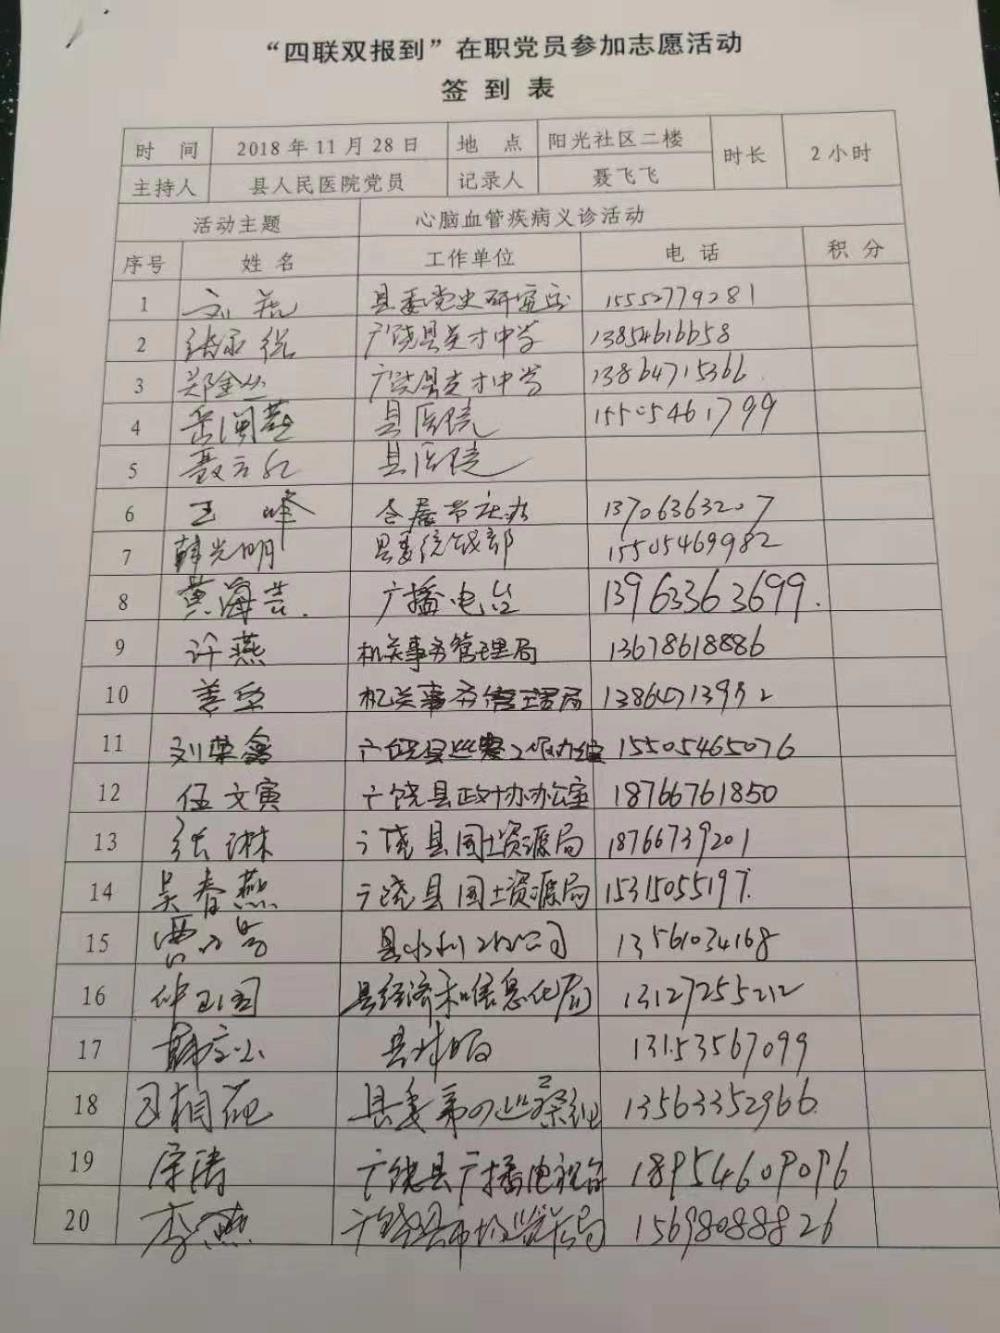 “四联双报到”在职党员参加志愿活动
签 到 表
时 间 2018年11月28日 地 点 阳光社区二楼 时长 2小时
主持人 县人民医院党员 记录人 聂飞飞
活动主题 心脑血管疾病义诊活动
序号 姓名 工作单位 电话 积分
1 县委党史研究室 15552779281
2 广饶县英才中学 13854616658
3 广饶县英才中学 13864715366
4 县医院 15505461799
5 县医院
6 王峰 13706363207
7 韩光明 县委统战部 15505469982
8 黄海芸 广播电台 13963363699
9 许燕 机关事务管理局 13678618886
10 姜 机关事务管理局
11 刘荣鑫 15505465076
12 伍文寅 广饶县政府办公室 18766761850
13 张琳 广饶县国土资源局 18766739201
14 吴春燕 广饶县国土资源局 15315055197
15 13561034168
16 仲卫国 县经济和信息化局 13127255212
17 13153567099
18 县委第四巡察组 13563352966
19 宋涛 广饶县广播电视台 18954609096
20 李燕 广饶县市场监管局 15698088826